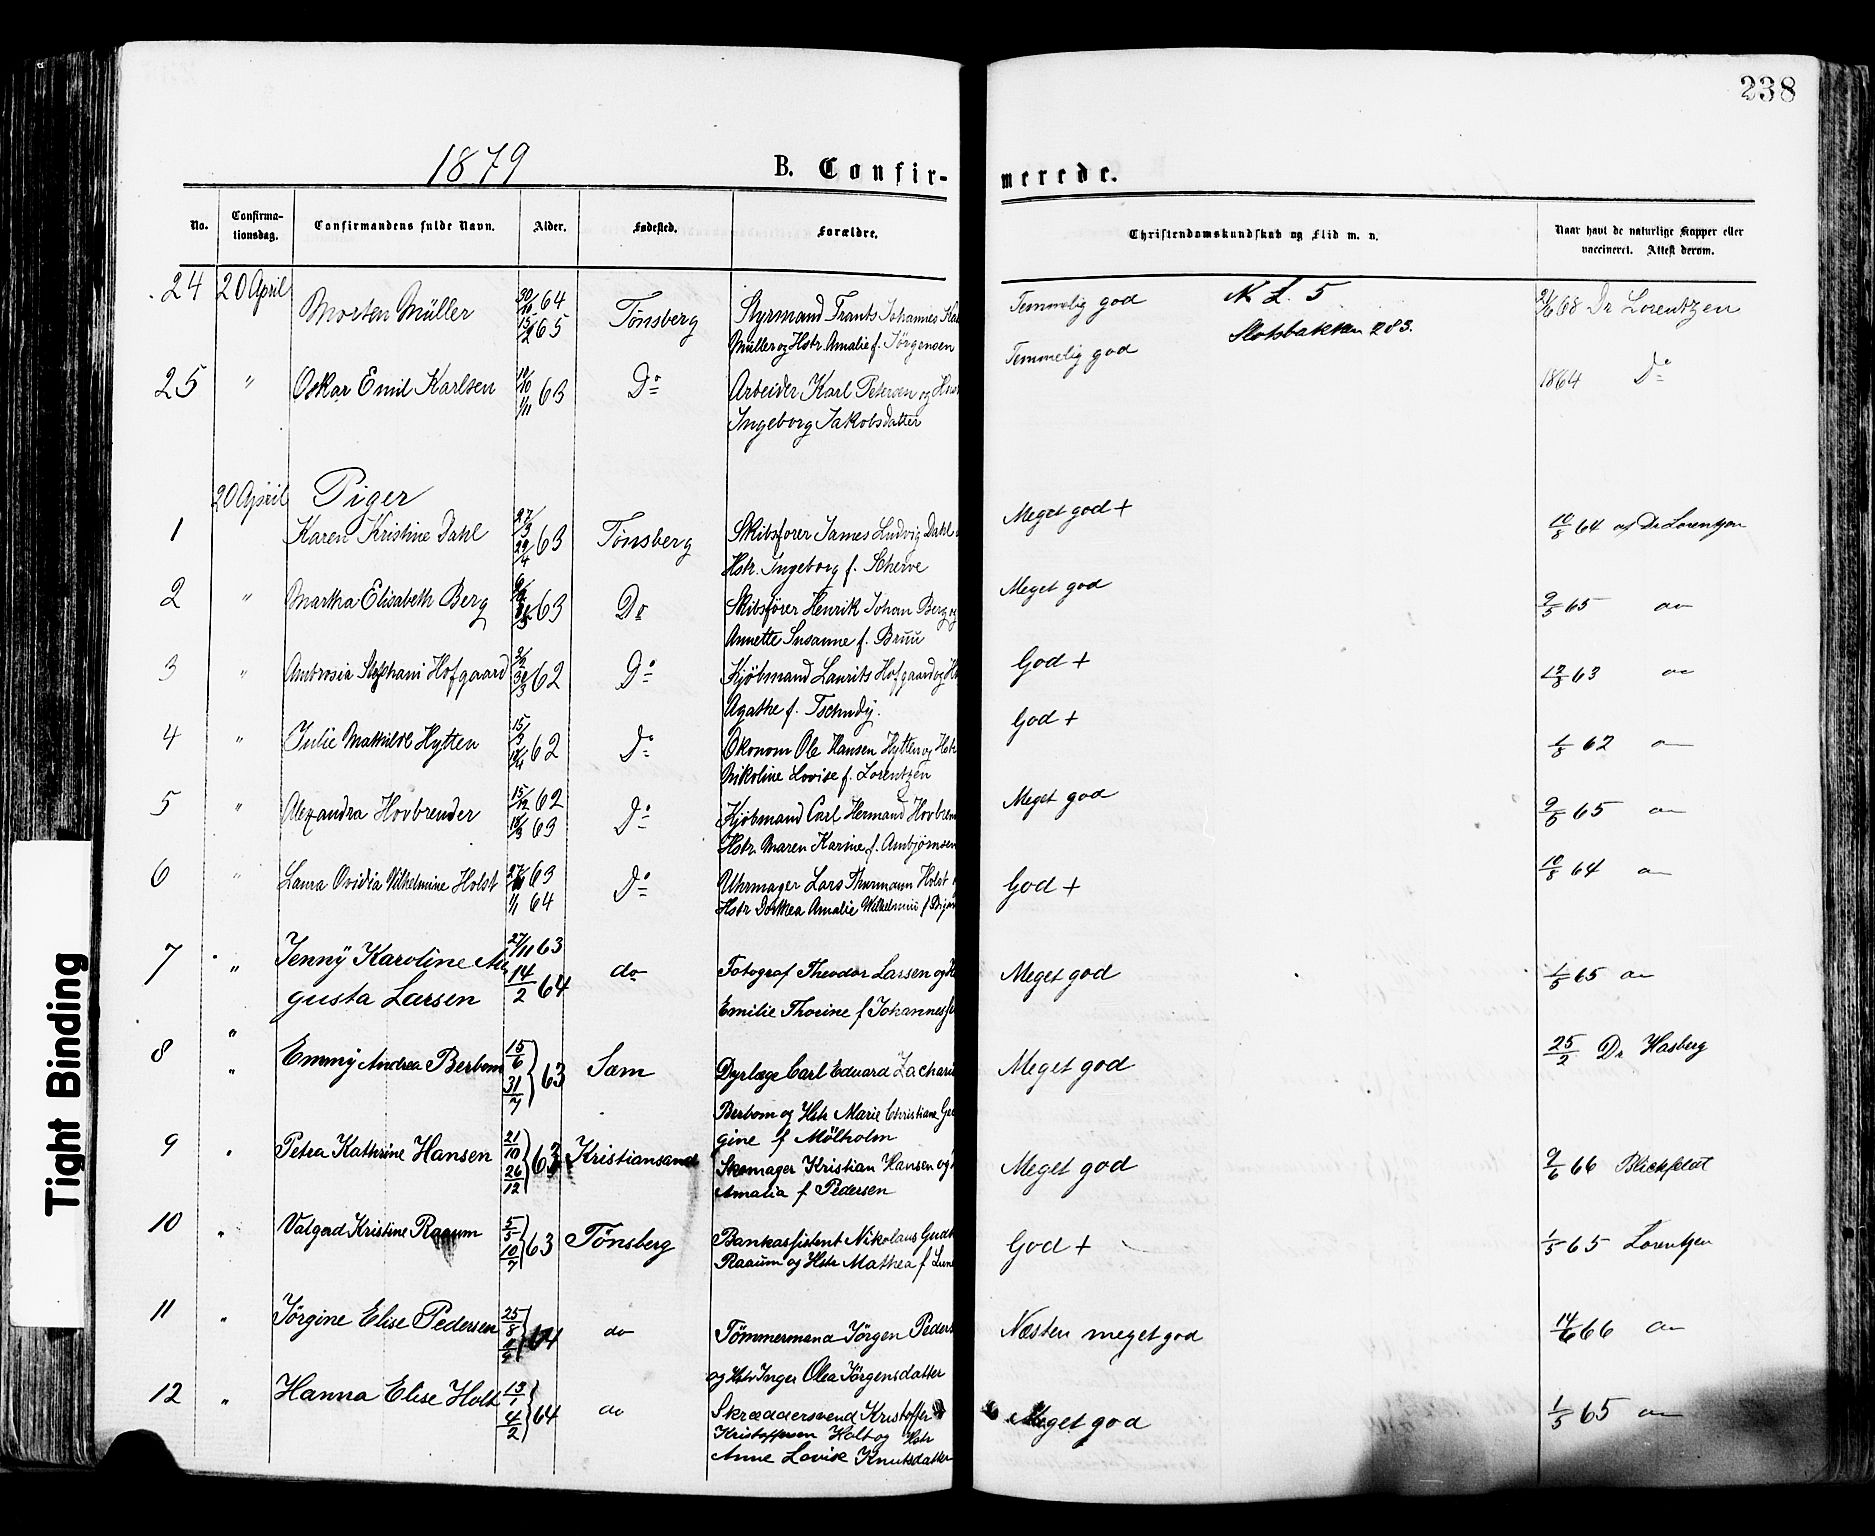 238
1879
B. Confir-
merede.
No.
Confirma-
tionsdag.
Confirmandens fulde Navn.
Alder.
Fødested.
Forældre.
Christendomskundskab og Flid m. v.
Naar havt de naturlige Kopper eller
vaccineret. Attest derom.
24 20 April Morten Müller 64 65 Tønsberg Styrmand Frants Johannes
Müller og Hstr. Amalie f. Jørgensen
Temmelig god
N L. 5
Slotsbakken 283.
68 Dr Lorentzen
25 " Oskar Emil Karlsen 63 Do Arbeider Karl Petersen og
Ingeborg Jakobsdatter
Temmelig god
1864 Do
20 April Piger
1 Karen Kristine Dahl 27/3 29/4 63 Tønsberg Skibsfører James Ludvig Dahl
Hstr. Ingeborg f. Scherve
Meget god +
10/8 64 af Dr Lorentzen
2 " Martha Elisabeth Berg 63 Do Skibsfører Henrik Johan Berg og
Annette Susanne f. Bruu
Meget god
9/5 65 an
3 " Ambrosia Stephani Hofgaard 62 Do Kjøbmand Laurits Hofgaard og
Agathe f. Tschudy.
God +
63 an
4 " Julie Mathilde Hytten 62 Do Økonom Ole Hansen Hytten og Hstr
Nikoline Lovise f. Lorentzen
God +
1/8 62 an
5 " Alexandra Hovbrender 15/12 62 63 Do Kjøbmand Carl Hermand Hovbren
Hstr. Maren Karine f. Ambjørnsen
Meget god
65 an
6 " Laura Ovidia Vilhelmine Holst 63 1/1 64 Do Uhrmager Lars Thurmann Holst
Hstr Dorthea Amalie Wilhelmine f
God +
10/8 64 an
7 " Jenny Karoline Au
gusta Larsen 27/11 63 14/2 64 do Fotograf Theodor Lassen og
Emilie Thorine f Johannes
Meget god
1/5 65 an
8 " Emmy Andrea Berbom 15/6 31/7 63 Sæm Dyrlæge Carl Eduard Zacharia
Berbom og Hstr Marie Christiane Ge
gine f Mølholm
Meget god
25/2 Dr Hasberg
9 " Petra Kathrine Hansen 21/10 26/12 63 Kristiansand Skomager Kristian Hansen og
Amalia f Pedersen
Meget god
9/6 66 Blickfeldt
10 " Valgerd Kristine Raaum 5/5 10/7 63 Tønsberg Bankassistent Nikolaus Gudb
Raaum og Hstr Mathea f Lun
God +
1/5 65 Lorentzen
11 " Jørgine Elise Pedersen 25/8 64 do Tømmermand Jørgen Peders
og Hstr Inger Olea Jørgensdatter
Næsten meget god
14/6 66 an
12 " Hanna Elise Holt 13/1 4/2 64 do Skræddersvend Kristoffer
Kristoffersen Holt og Hstr
Anne Lovise Knutsdatter
Meget god
1/5 65 an
Tight Binding